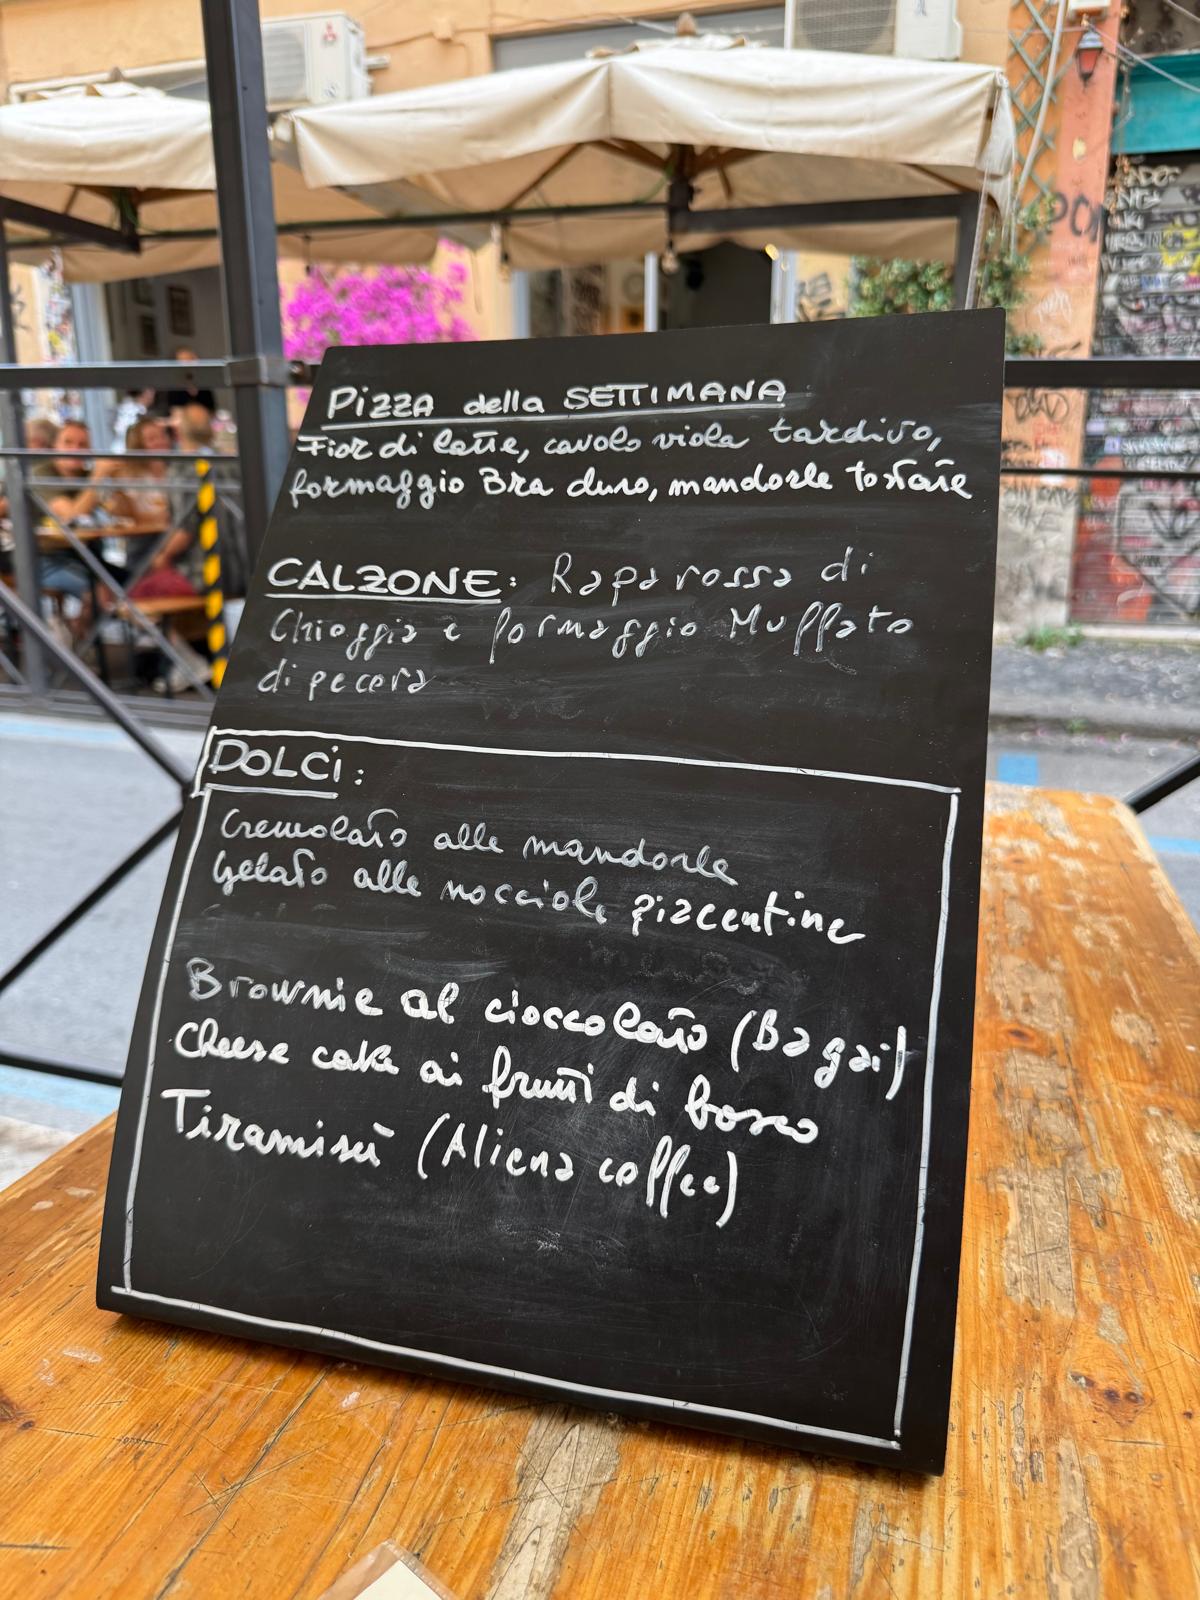 PiZZA della SETTIMANA
Fior di latte, cavolo viola tardivo,
formaggio Bra duro, mandorle tostate
CALZONE: Rapa rossa di
Chioggia e formaggio Muffato
di pecora
DOLCi:
Cremolato alle mandorle
Gelato alle nocciole piacentine
Brownie al cioccolato (Bagai)
Cheese cake ai frutti di bosco
Tiramisù (Aliena coffee)